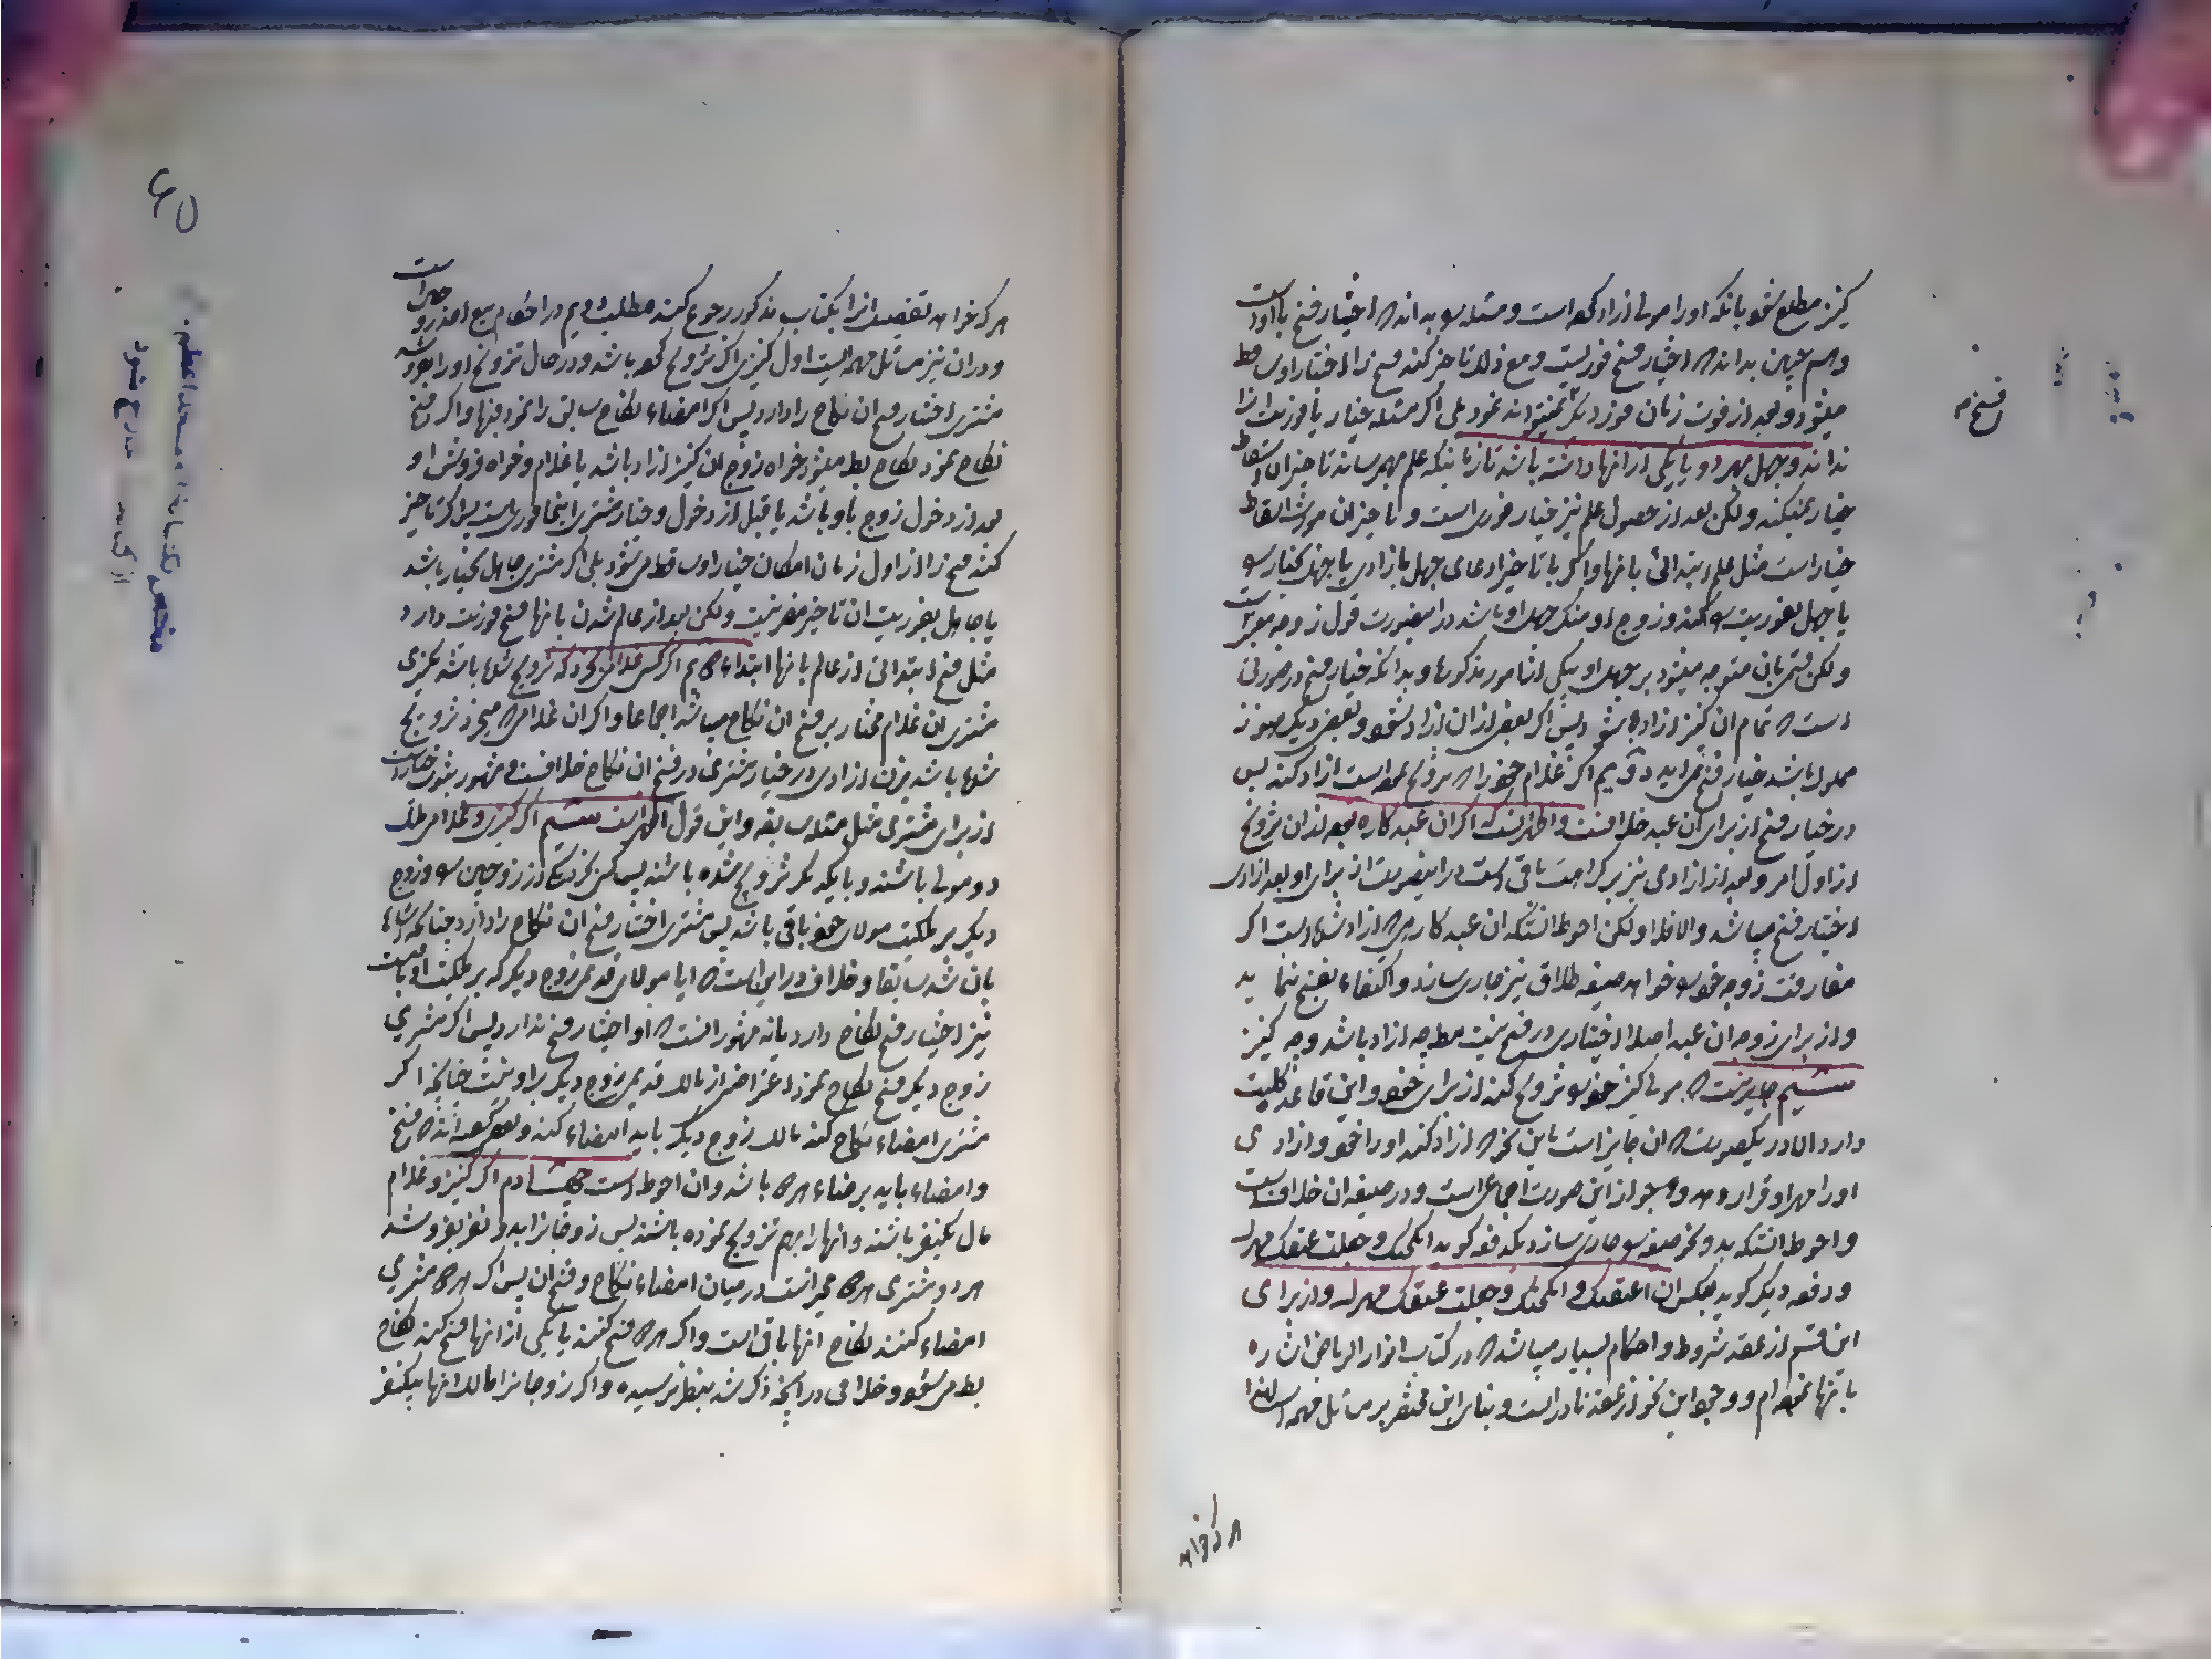 کنیز مطلع شود بانکه او را مولی ازاد کرده است و مسئله را بداند که اختیار فسخ با اوست
و هم چنین بداند که اختیار فسخ فوریست و مع ذلک تاخیر کند فسخ را اختیار او ساقط
میشود و بعد از فوت زمان فوز دیگر نمیتواند نمود بلی اگر مسئله خیار یا فوریت انرا
نداند و جهل بهر دو یا یکی از انها داشته باشد تا زمانیکه علم بهم رساند تاخیر ان اسقاط
خیار نمیکند ولکن بعد از حصول علم نیز خیار فوری است و تاخیر ان مورث اسقاط
خیار است مثل علم ابتدائی بانها و اگر با تاخیر ادعای جهل بازادی یا جهل بخیار را
یا جهل بفوریت را کند و زوج او منکر جهل او باشد در اینصورت قول زوجه معتبر است
ولکن قسم بان متوجه میشود بر جهل او بیکی از امور مذکوره و بدانکه خیار فسخ در صورتی
است که تمام ان کنیز ازاد شود پس اگر بعض از ان ازاد شود و بعض دیگر هنوز
مملوک باشد خیار فسخ نمی‌اید دویم اگر غلام خود را که تزویج نموده است ازاد کند پس
در خیار فسخ از برای ان عبد خلافست و اظهر انست که اگر ان عبد کاره بوده از ان تزویج
از اول امر و بعد از ازادی نیز بر کراهت باقی است در اینصورت از برای او بعد ازادی
اختیار فسخ میباشد و الا فلا ولکن احوط انستکه ان عبد کاره که ازاد شده است اگر
مفارقت زوجه خود را خواهد صیغه طلاق نیز جاری سازد و اکتفاء بفسخ ننماید
و از برای زوجه ان عبد اصلا اختیاری در فسخ نیست مطلقا چه ازاد باشد و چه کنیز
سیم جایز نیست که مولی کنیز خود را تزویج کند از برای خود و این قاعده کلیت
دارد الا در یکصورت که ان جایز است باین نحو که ازاد کند او را خود و ازادی
او را مهر او قرار دهد و جواز این صورت اجماعی است و در صیغه ان خلاف است
و احوط انستکه بدو نحو صیغه را جاری سازد یکدفعه گوید انکحتک و جعلت عتقک مهرک
و دفعه دیگر گوید بعکس ان اعتقتک و انکحتک و جعلت عتقک مهرک و از برای
این قسم از عقد شروط و احکام بسیار میباشد که در کتاب انوار الریاض اشاره
بانها نموده‌ام و وجود این نحو از عقد نادر است و بنای این مختصر بر مسائل مهمه است لهذا
هر که خواهد
فسخ م
هر که خواهد تفصیل انرا بکتاب مذکور رجوع کند مطلب دویم در احکام بیع
و در ان نیز مسائل مهمه ایست اول کنیزی اگر تزویج کرده باشد و در حال تزویج او را بفروشد
مشتری اختیار فسخ ان نکاح را دارد پس اگر امضاء نکاح سابق را نمود فبها و اگر فسخ
نکاح نمود نکاح باطل میشود خواه زوج ان کنیز ازاد باشد یا غلام و خواه فروش او
بعد از دخول زوج باو باشد یا قبل از دخول و خیار مشتری اینجا فوری است پس اگر تاخیر
کند فسخ را از اول زمان امکان خیار او ساقط میشود بلی اگر مشتری جاهل بخیار باشد
یا جاهل بفوریت ان تاخیر مضر نیست ولکن بعد از عالم شدن بانها فسخ فوریت دارد
مثل فسخ ابتدائی از عالم بانها ابتداء دویم اگر کسی غلامی بخرد که تزویج شده باشد بکنیزی
مشتری ان غلام مختار بر فسخ ان نکاح میباشد اجماعا و اگر ان غلام که میخرد تزویج
شده باشد بزن ازادی در خیار مشتری در فسخ ان نکاح خلافست و مشهور ثبوت خیار است
از برای مشتری مثل مسئله سابقه و این قول اظهر است سیم اگر کنیزی و غلامی ملک
دو مولی باشند و با یکدیگر تزویج شده باشند پس کسی بخرد یکی از زوجین را و زوج
دیگر بر ملکیت مولای خود باقی باشد پس مشتری اختیار فسخ ان نکاح را دارد چنانکه اشاره
بان شد سابقا و خلاف در این است که ایا مولای قدیمی زوج دیگر که بر ملکیت او باقیست
نیز اختیار فسخ نکاح دارد یا نه مشهور انست که او اختیار فسخ ندارد پس اگر مشتری
زوج دیگر فسخ نکاح نمود اعتراض از مالک قدیمی زوج دیگر بر او نیست چنانچه اگر
مشتری امضاء نکاح کند مالک زوج دیگر باید امضاء کند و بعضی گفته‌اند که فسخ
و امضاء باید برضاء هر دو باشد و ان احوط است چهارم اگر کنیز و غلام
مال یکنفر باشند و انها را بهم تزویج نموده باشند پس زوجان را به دو نفر بفروشد
هر دو مشتری هر دو مخیرانند در میان امضاء نکاح و فسخ ان پس اگر هر دو مشتری
امضاء کنند نکاح انها باقی است و اگر هر دو فسخ کنند یا یکی از انها فسخ کند نکاح
باطل میشود و خلافی در انچه ذکر شد بنظر نرسیده و اگر زوجان را مالک انها بیکنفر